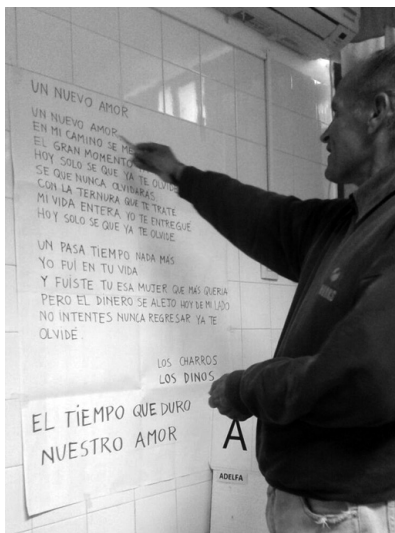 UN NUEVO AMOR
UN NUEVO AMOR
EN MI CAMINO SE
EL GRAN MOMENTO
HOY SOLO SE QUE YA TE OLVIDE
SE QUE NUNCA OLVIDARAS
CON LA TERNURA QUE TE TRATE
MI VIDA ENTERA YO TE ENTREGUE
HOY SOLO SE QUE YA TE OLVIDE
UN PASA TIEMPO NADA MÁS
YO FUÍ EN TU VIDA
Y FUÍSTE TU ESA MUJER QUE MÁS QUERIA
PERO EL DINERO SE ALEJO HOY DE MI LADO
NO INTENTES NUNCA REGRESAR YA TE
OLVIDÉ.
LOS CHARROS
LOS DINOS
EL TIEMPO QUE DURO
NUESTRO AMOR
A
ADELFA